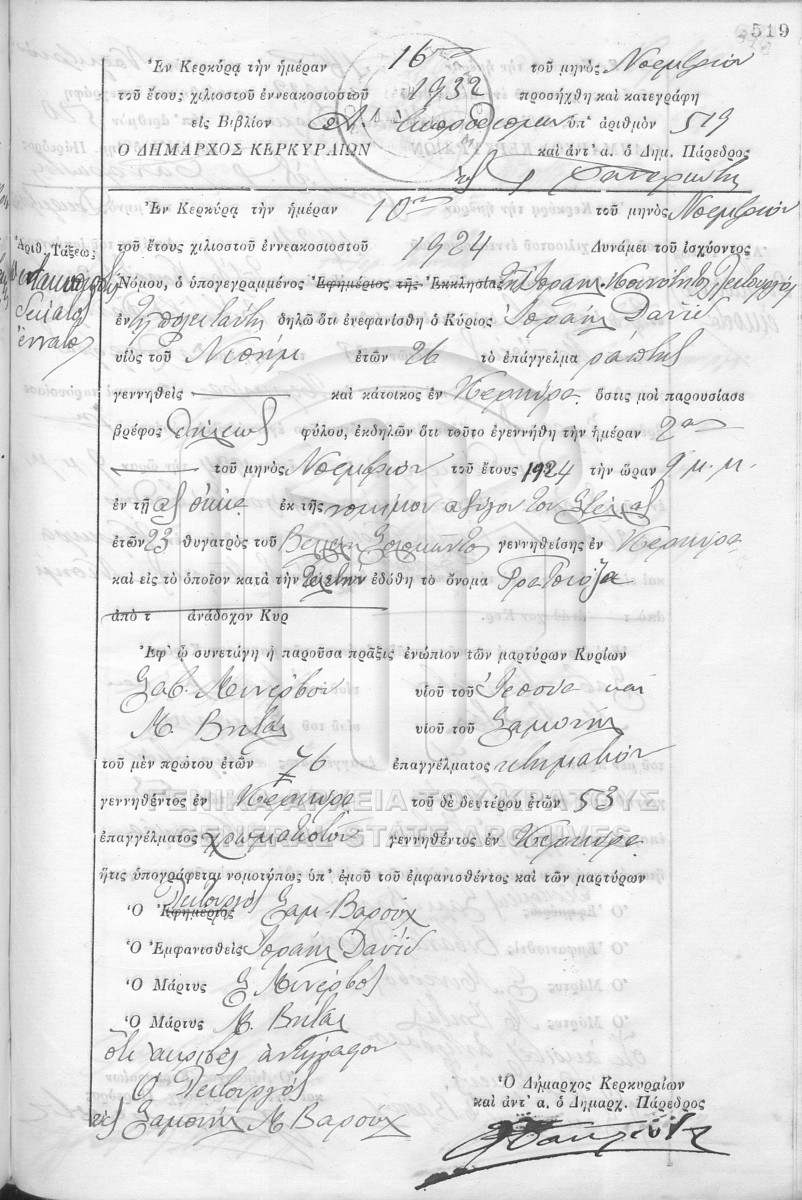 519
Ἐν Κερκύρᾳ τὴν ἡμέραν 16ην τοῦ μηνὸς Νοεμβρίου
τοῦ ἔτους χιλιοστοῦ ἐννεακοσιοστοῦ 1932 προσήχθη καὶ κατεγράφη
εἰς Βιβλίον ὑπ' ἀριθμὸν 519
Ο ΔΗΜΑΡΧΟΣ ΚΕΡΚΥΡΑΙΩΝ καὶ ἀντ' α. ὁ Δημ. Πάρεδρος
Ἐν Κερκύρᾳ τὴν ἡμέραν 10ην τοῦ μηνὸς Νοεμβρίου
Ἀριθ. Τάξεως
δέκατος
ἔννατος
τοῦ ἔτους χιλιοστοῦ ἐννεακοσιοστοῦ 1924 Δυνάμει τοῦ ἰσχύοντος
Νόμου, ὁ ὑπογεγραμμένος Ἐφημέριος τῆς Ἐκκλησίας τῆς Ἰσραηλ. Κοινότητος Λειτουργός
ἐν δηλῶ ὅτι ἐνεφανίσθη ὁ Κύριος Ἰσραὴλ Δαυίδ
υἱὸς τοῦ Νισήμ ἐτῶν 26 τὸ ἐπάγγελμα ράπτης
γεννηθεὶς καὶ κάτοικος ἐν Κερκύρᾳ ὅστις μοὶ παρουσίασε
βρέφος θήλεως φύλου, ἐκδηλῶν ὅτι τοῦτο ἐγεννήθη τὴν ἡμέραν 2αν
τοῦ μηνὸς Νοεμβρίου τοῦ ἔτους 1924 τὴν ὥραν 9 μ.μ.
ἐν τῇ οἰκίᾳ ἐκ τῆς νομίμου συζύγου του Στέλλας
ἐτῶν 23 θυγατρὸς τοῦ γεννηθείσης ἐν Κερκύρᾳ
καὶ εἰς τὸ ὁποῖον κατὰ τὴν τελετὴν ἐδόθη τὸ ὄνομα Γρατσιόζα
ἀπὸ τ ἀνάδοχον Κυρ
Ἐφ' ᾧ συνετάγη ἡ παροῦσα πρᾶξις ἐνώπιον τῶν μαρτύρων Κυρίων
Σαβ. Μινέρβου υἱοῦ τοῦ Ἰεσουα καὶ
Μ. Βιτάλ υἱοῦ τοῦ Σαμουήλ
τοῦ μὲν πρώτου ἐτῶν 76 ἐπαγγέλματος κτηματίου
γεννηθέντος ἐν Κερκύρᾳ τοῦ δὲ δευτέρου ἐτῶν 53
ΓΕΝΙΚΑ ΑΡΧΕΙΑ ΤΟΥ ΚΡΑΤΟΥΣ
GENERAL STATE ARCHIVES
ἐπαγγέλματος χρωματιστοῦ γεννηθέντος ἐν Κερκύρᾳ
ἥτις ὑπογράφεται νομοτύπως ὑπ' ἐμοῦ τοῦ ἐμφανισθέντος καὶ τῶν μαρτύρων
Λειτουργός
Ὁ Ἐφημέριος Σαμ. Βαρούχ
Ὁ Ἐμφανισθεὶς Ἰσραὴλ Δαυίδ
Ὁ Μάρτυς Σ Μινέρβος
Ὁ Μάρτυς Μ. Βιτάλ
Ὅτι ἀκριβὲς ἀντίγραφον
Ὁ Λειτουργός
Σαμουὴλ Μ Βαρούχ
Ὁ Δήμαρχος Κερκυραίων
καὶ ἀντ' α, ὁ Δημαρχ. Πάρεδρος